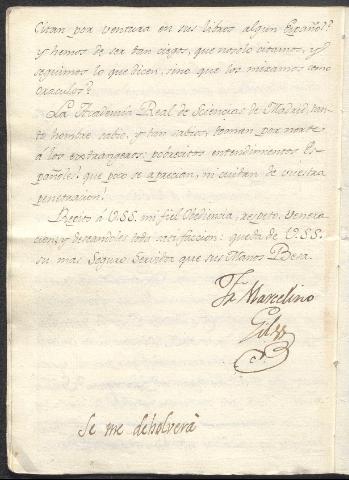 Citan por ventura en sus libros algun Español?
y hemos de ser tan ciegos, que no solo citamos, y
seguimos lo que dicen, sino que los miramos como
oraculos?
La Academia Real de Sciencias de Madrid, tan-
to hombre sabio, y tan sabios, toman por norte
á los extrangeros: pobrecitos entendimientos Es-
pañoles! que poco se aprecian, ni cuidan de vuestra
penetracion!
Repito á V.SS. mi fiel Obediencia, respeto, venera-
cion, y deseandoles toda satisfaccion: queda de V.SS.
su mas Seguro Servidor que sus Manos Besa.
Fr. Marcelino
Gil
Se me debolverà